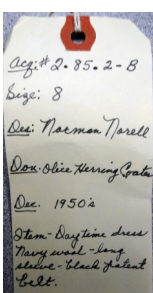 Acq:# 2.85.2-B
Size: 8
Des: Norman Norell
Don: Olice Herring Coates
Dec. 1950's
Item - Daytime dress
Navy wool - long
sleeve - black patent
belt.